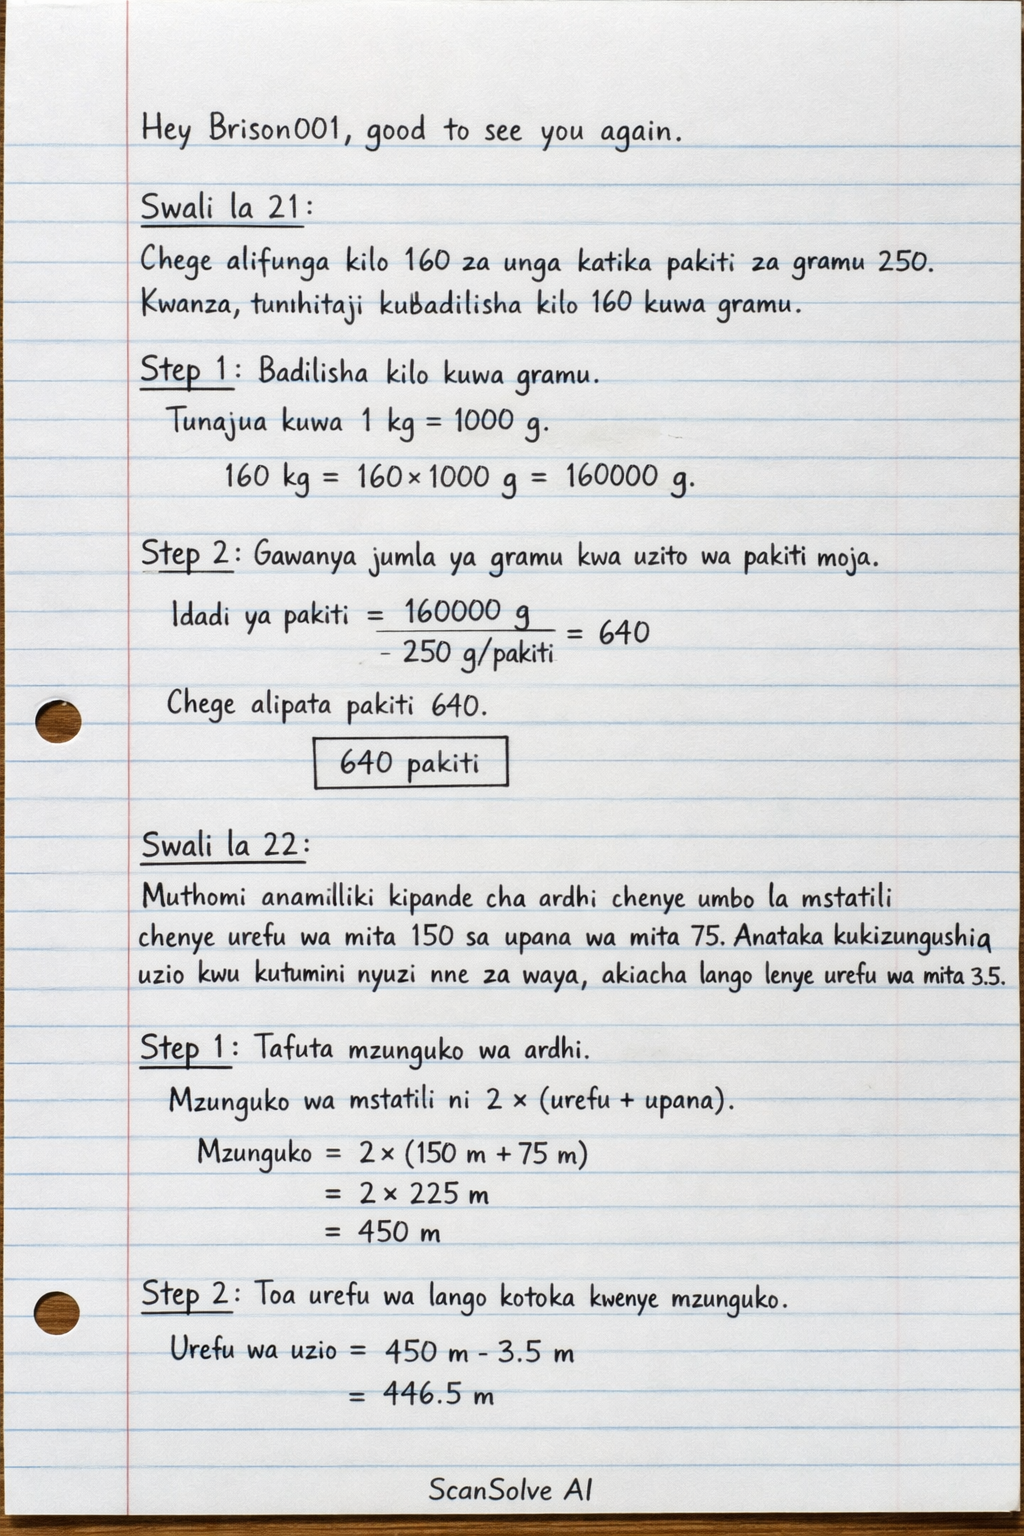 Hey Brison001, good to see you again.
Swali la 21:
Chege alifunga kilo 160 za unga katika pakiti za gramu 250.
Kwanza, tunıhitaji kubadilisha kilo 160 kuwa gramu.
Step 1: Badilisha kilo kuwa gramu.
Tunajua kuwa 1 kg = 1000 g.
160 kg = 160 × 1000 g = 160000 g.
Step 2: Gawanya jumla ya gramu kwa uzito wa pakiti moja.
Idadi ya pakiti = 160000 g
- 250 g/pakiti = 640
Chege alipata pakiti 640.
640 pakiti
Swali la 22:
Muthomi anamilliki kipande cha ardhi chenye umbo la mstatili
chenye urefu wa mita 150 sa upana wa mita 75. Anataka kukizungushia
uzio kwu kutumini nyuzi nne za waya, akiacha lango lenye urefu wa mita 3.5.
Step 1: Tafuta mzunguko wa ardhi.
Mzunguko wa mstatili ni 2 × (urefu + upana).
Mzunguko = 2 × (150 m + 75 m)
= 2 × 225 m
= 450 m
Step 2: Toa urefu wa lango kotoka kwenye mzunguko.
Urefu wa uzio = 450 m - 3.5 m
= 446.5 m
ScanSolve AI